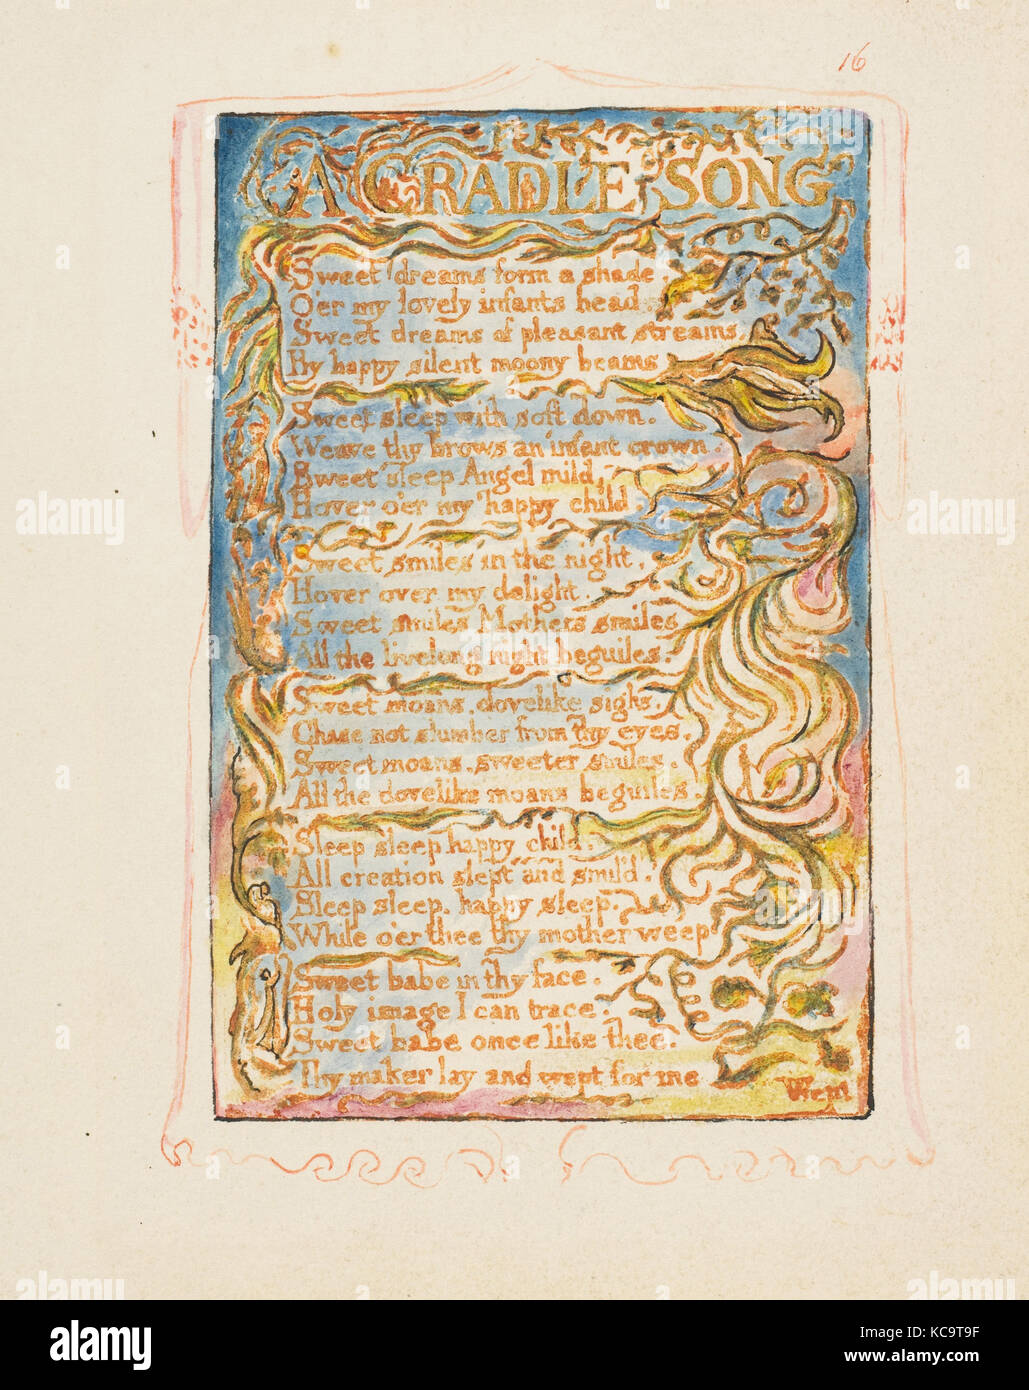 16
A CRADLE SONG
Sweet dreams form a shade
O'er my lovely infants head
Sweet dreams of pleasant streams
By happy silent moony beams
Sweet sleep with soft down.
Weave thy brows an infant crown.
Sweet sleep Angel mild,
Hover o'er my happy child.
Sweet smiles in the night,
Hover over my delight.
Sweet smiles Mothers smiles
All the livelong night beguiles.
Sweet moans, dovelike sighs,
Chase not slumber from thy eyes.
Sweet moans, sweeter smiles.
All the dovelike moans beguiles.
Sleep sleep happy child.
All creation slept and smil'd.
Sleep sleep, happy sleep.
While o'er thee thy mother weep
Sweet babe in thy face.
Holy image I can trace.
Sweet babe once like thee.
Thy maker lay and wept for me
Wept
alamy stock photo
a
a
alamy
Image ID: KC9T9F
www.alamy.com